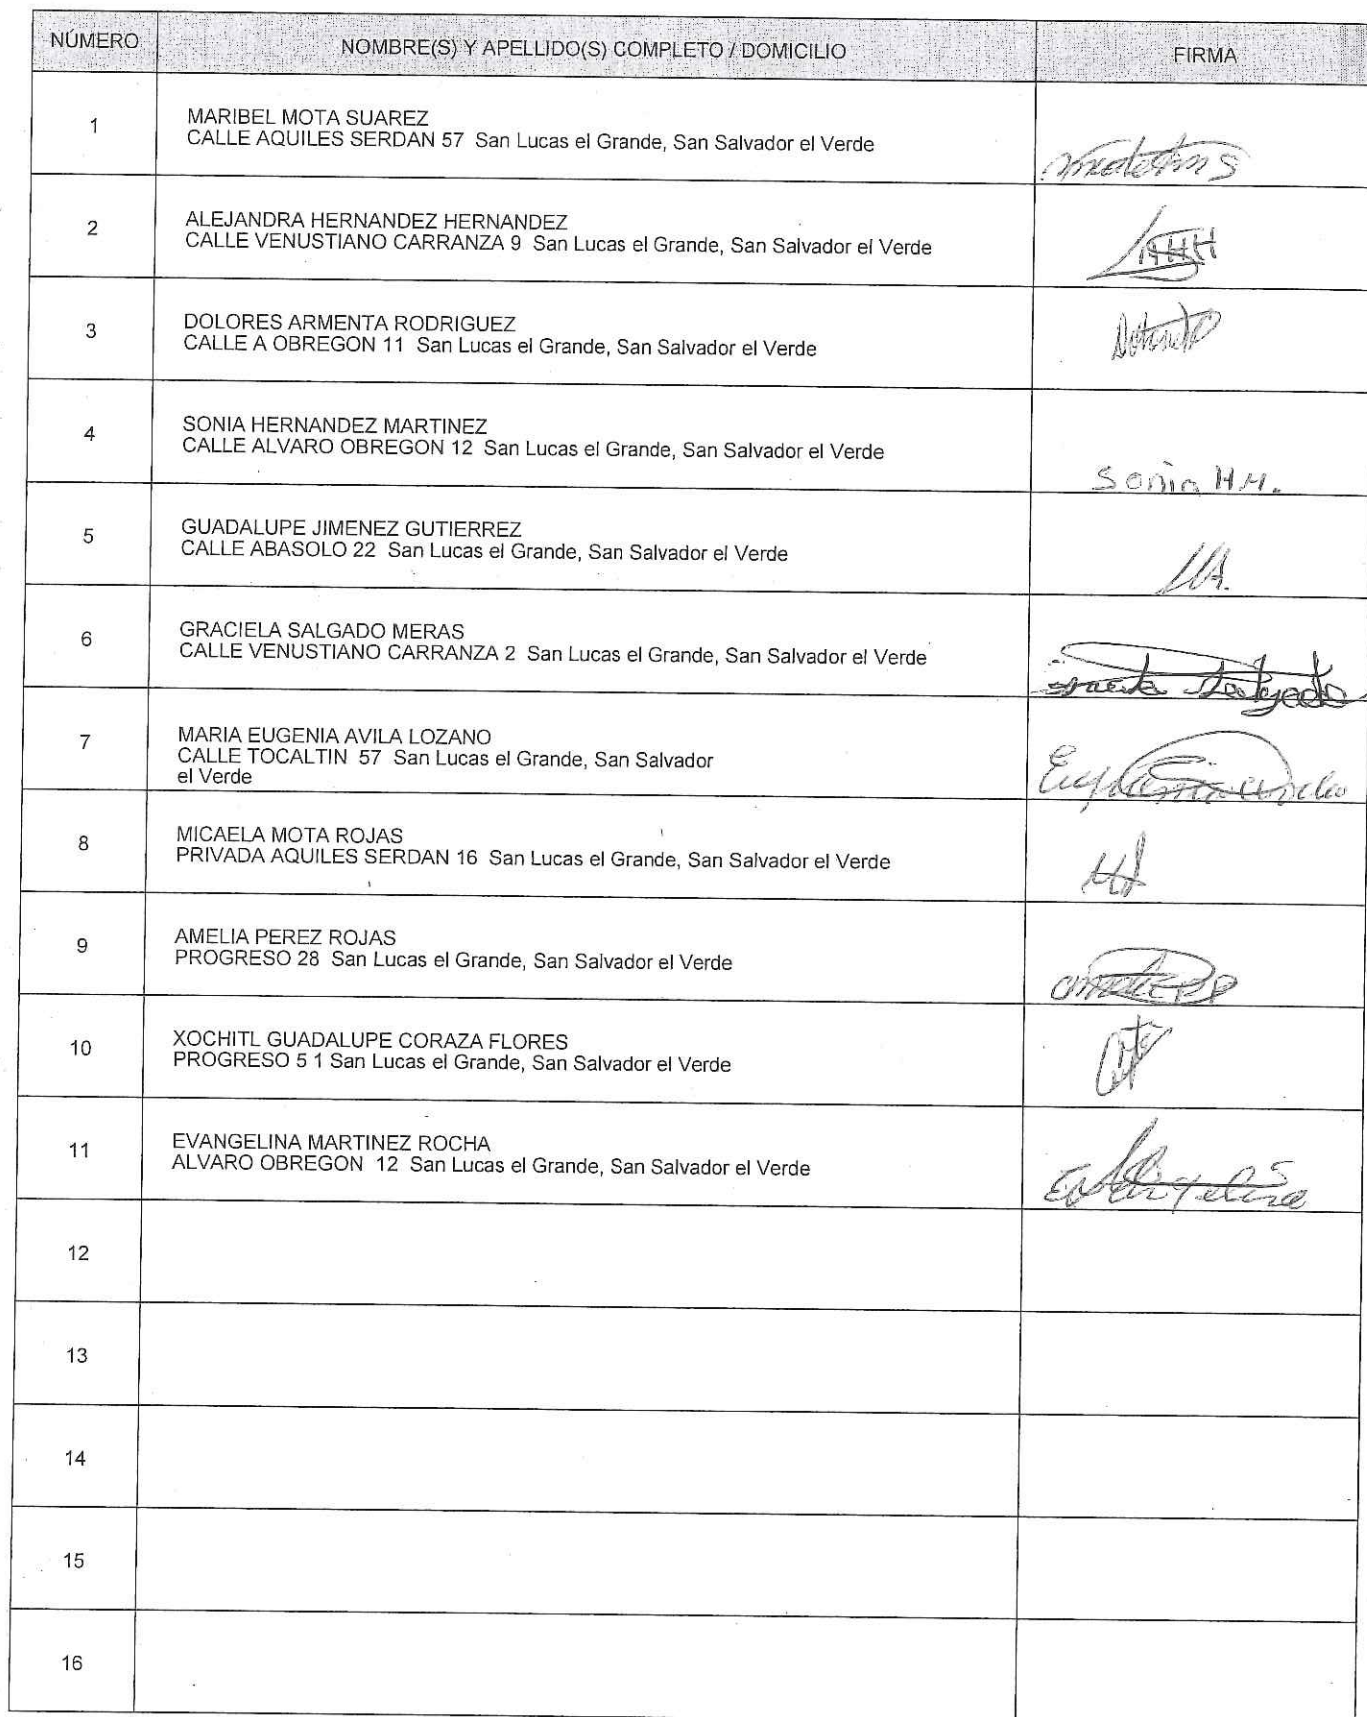 NÚMERO NOMBRE(S) Y APELLIDO(S) COMPLETO / DOMICILIO FIRMA
1 MARIBEL MOTA SUAREZ
CALLE AQUILES SERDAN 57 San Lucas el Grande, San Salvador el Verde
2 ALEJANDRA HERNANDEZ HERNANDEZ
CALLE VENUSTIANO CARRANZA 9 San Lucas el Grande, San Salvador el Verde
3 DOLORES ARMENTA RODRIGUEZ
CALLE A OBREGON 11 San Lucas el Grande, San Salvador el Verde
4 SONIA HERNANDEZ MARTINEZ
CALLE ALVARO OBREGON 12 San Lucas el Grande, San Salvador el Verde
Sonia H.M.
5 GUADALUPE JIMENEZ GUTIERREZ
CALLE ABASOLO 22 San Lucas el Grande, San Salvador el Verde
6 GRACIELA SALGADO MERAS
CALLE VENUSTIANO CARRANZA 2 San Lucas el Grande, San Salvador el Verde
Salgado
7 MARIA EUGENIA AVILA LOZANO
CALLE TOCALTIN 57 San Lucas el Grande, San Salvador
el Verde
8 MICAELA MOTA ROJAS
PRIVADA AQUILES SERDAN 16 San Lucas el Grande, San Salvador el Verde
9 AMELIA PEREZ ROJAS
PROGRESO 28 San Lucas el Grande, San Salvador el Verde
10 XOCHITL GUADALUPE CORAZA FLORES
PROGRESO 5 1 San Lucas el Grande, San Salvador el Verde
11 EVANGELINA MARTINEZ ROCHA
ALVARO OBREGON 12 San Lucas el Grande, San Salvador el Verde
Evangelina
12
13
14
15
16